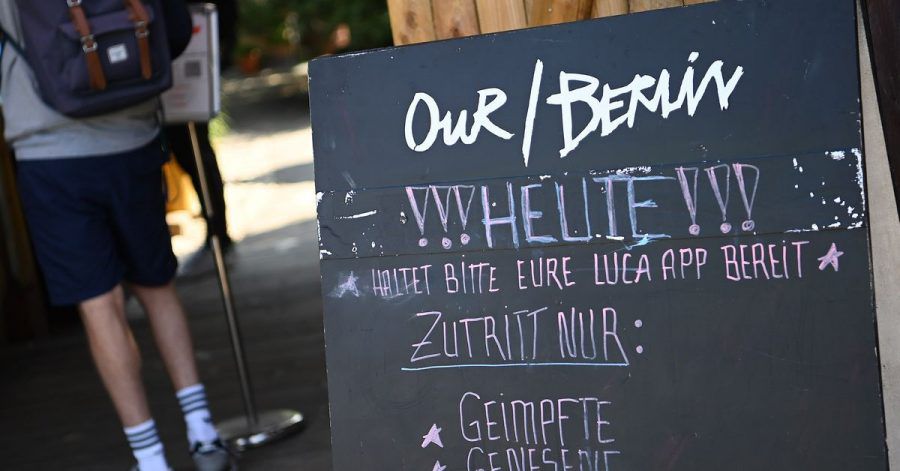 OUR/BERLIN
!!!HEUTE!!!
HALTET BITTE EURE LUCA APP BEREIT
ZUTRITT NUR:
GEIMPFTE
GENESENE